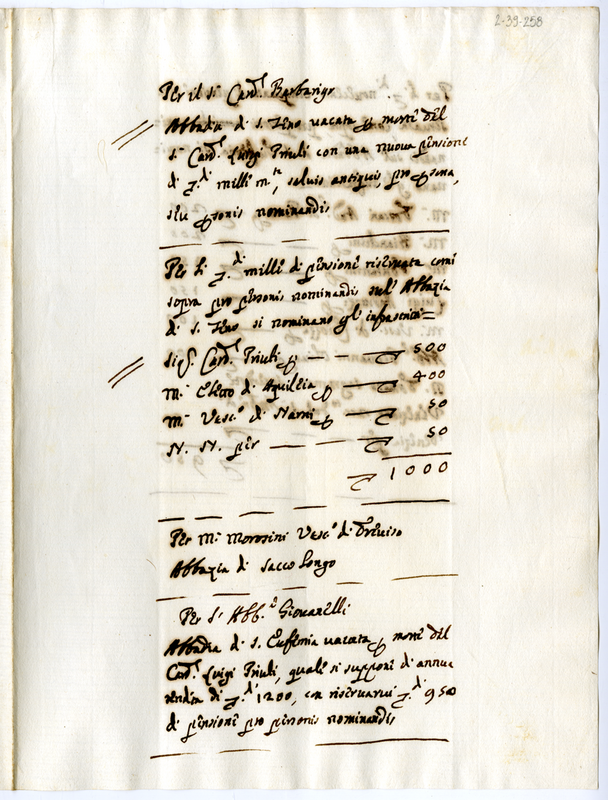 2-39-258
Per il S.r Card.l Barbarigo
Abbadia di S. Zeno vacata p morte del
S.r Card.l Luigi Priuli con una nuova pensione
di z.di mille m.ta, salvis antiquis, pro psona,
seu psonis nominandis
Per li z.di mille di pensione riservata come
sopra pro personis nominandis sul' Abbazia
di S. Zeno si nominano gl' infrascritti=
Sig.r Card.l Priuli p 500
M.r Eletto di Aquillia p 400
M.r Vesc.o di Narni p 50
N. N. per 50
1000
Per M.r Morosini Vesc.o di Treviso
Abbazia di Sacco longo
Per S.r Abb.e Giovanelli
Abbadia di S. Eufemia vacata p morte del
Card.l Luigi Priuli, quale si suppone di annua
rendita di z.di 1200, con riservarvi z.di 950
di pensione pro personis nominandis